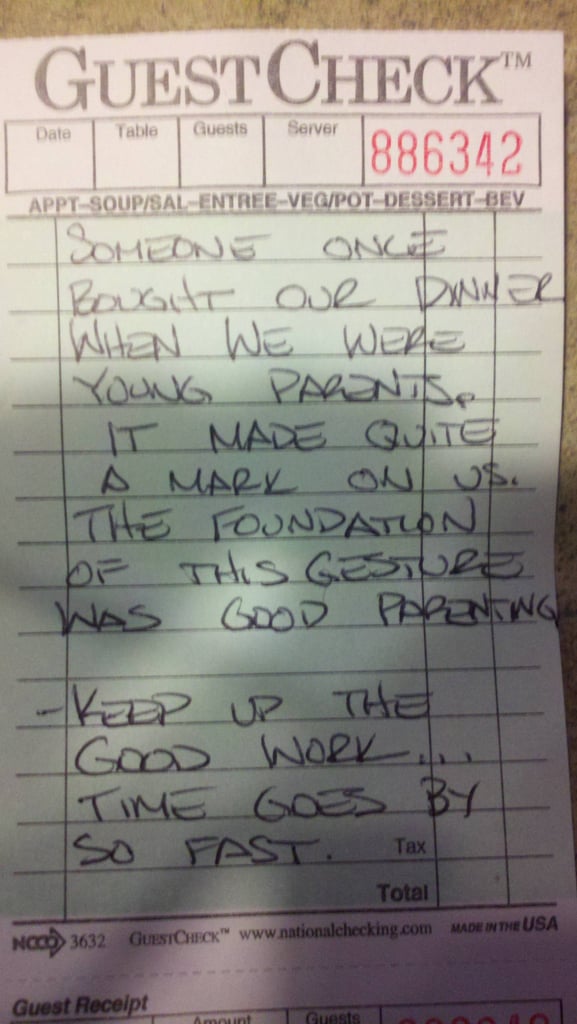 GUESTCHECK™
Date Table Guests Server 886342
APPT-SOUP/SAL-ENTREE-VEG/POT-DESSERT-BEV
SOMEONE ONCE
BOUGHT OUR DINNER
WHEN WE WERE
YOUNG PARENTS.
IT MADE QUITE
A MARK ON US.
THE FOUNDATION
OF THIS GESTURE
WAS GOOD PARENTING
-KEEP UP THE
GOOD WORK...
TIME GOES BY
SO FAST. Tax
Total
NCCO 3632 GUESTCHECK™ www.nationalchecking.com MADE IN THE USA
Guest Receipt
Amount Guests